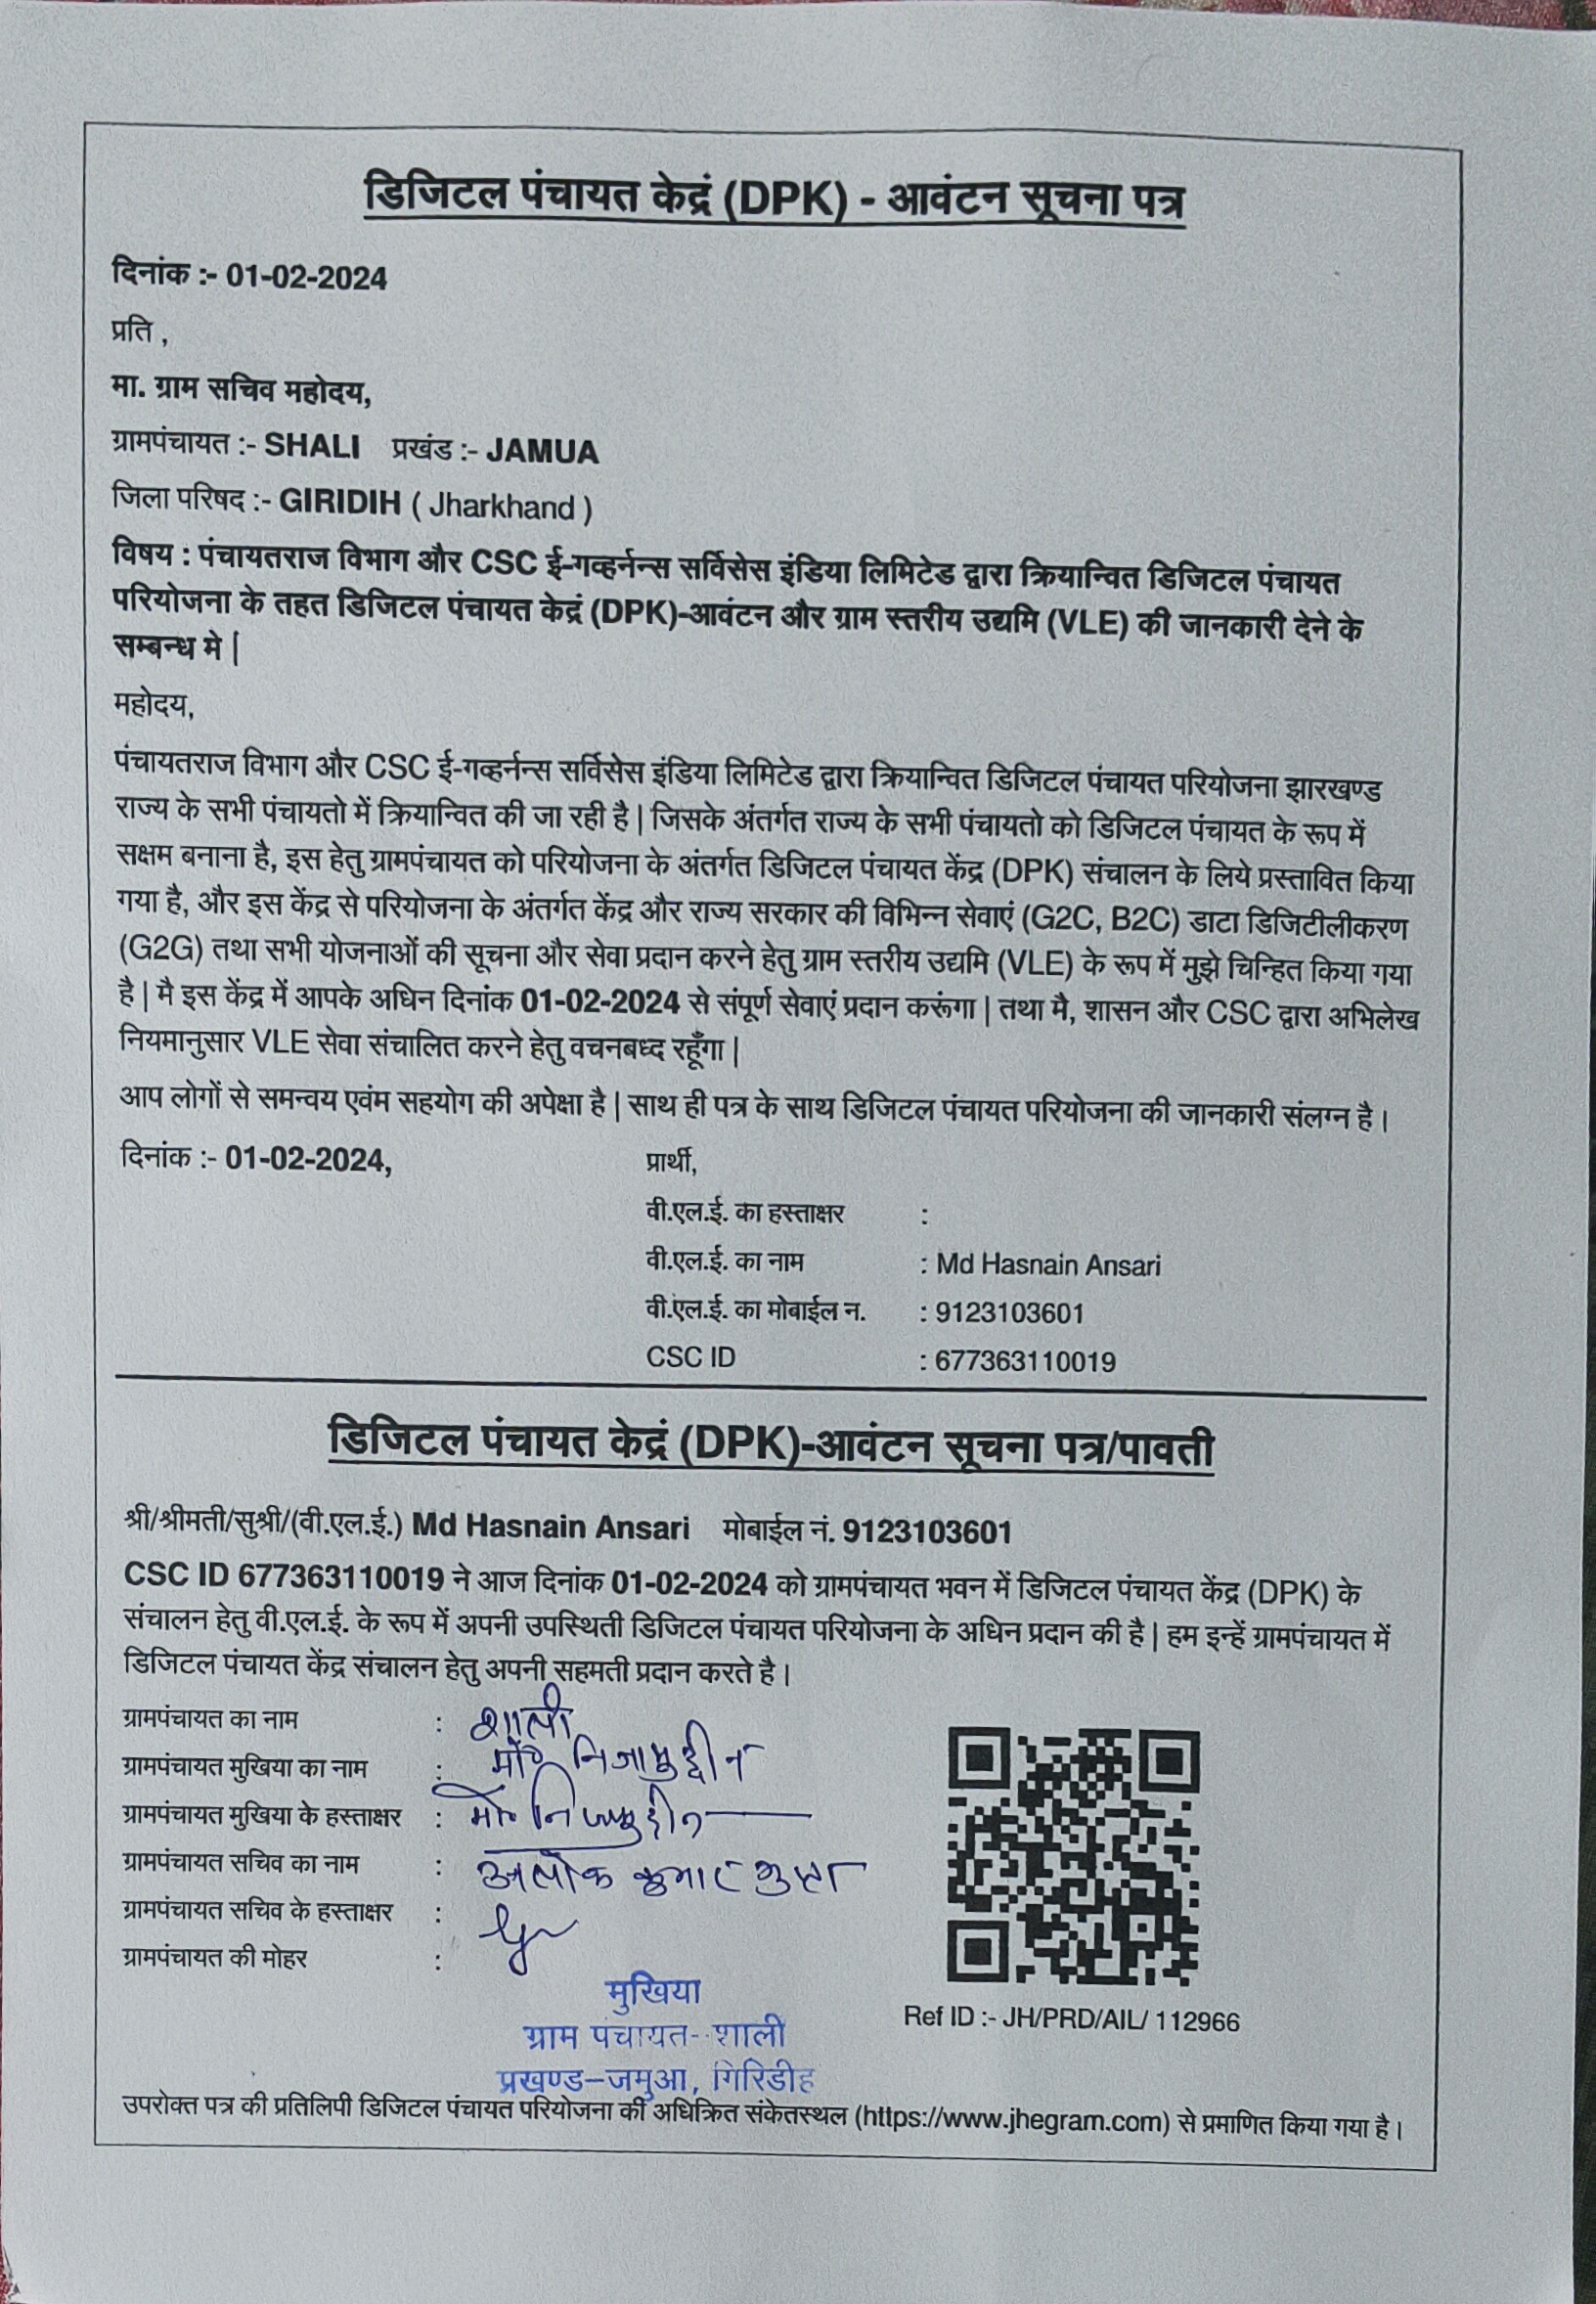 डिजिटल पंचायत केद्रं (DPK) - आवंटन सूचना पत्र
दिनांक :- 01-02-2024
प्रति ,
मा. ग्राम सचिव महोदय,
ग्रामपंचायत :- SHALI प्रखंड :- JAMUA
जिला परिषद :- GIRIDIH ( Jharkhand )
विषय : पंचायतराज विभाग और CSC ई-गव्हर्नन्स सर्विसेस इंडिया लिमिटेड द्वारा क्रियान्वित डिजिटल पंचायत
परियोजना के तहत डिजिटल पंचायत केद्रं (DPK)-आवंटन और ग्राम स्तरीय उद्यमि (VLE) की जानकारी देने के
सम्बन्ध मे |
महोदय,
पंचायतराज विभाग और CSC ई-गव्हर्नन्स सर्विसेस इंडिया लिमिटेड द्वारा क्रियान्वित डिजिटल पंचायत परियोजना झारखण्ड
राज्य के सभी पंचायतो में क्रियान्वित की जा रही है | जिसके अंतर्गत राज्य के सभी पंचायतो को डिजिटल पंचायत के रूप में
सक्षम बनाना है, इस हेतु ग्रामपंचायत को परियोजना के अंतर्गत डिजिटल पंचायत केंद्र (DPK) संचालन के लिये प्रस्तावित किया
गया है, और इस केंद्र से परियोजना के अंतर्गत केंद्र और राज्य सरकार की विभिन्न सेवाएं (G2C, B2C) डाटा डिजिटीलीकरण
(G2G) तथा सभी योजनाओं की सूचना और सेवा प्रदान करने हेतु ग्राम स्तरीय उद्यमि (VLE) के रूप में मुझे चिन्हित किया गया
है | मै इस केंद्र में आपके अधिन दिनांक 01-02-2024 से संपूर्ण सेवाएं प्रदान करूंगा | तथा मै, शासन और CSC द्वारा अभिलेख
नियमानुसार VLE सेवा संचालित करने हेतु वचनबध्द रहूँगा |
आप लोगों से समन्वय एवंम सहयोग की अपेक्षा है | साथ ही पत्र के साथ डिजिटल पंचायत परियोजना की जानकारी संलग्न है |
दिनांक :- 01-02-2024, प्रार्थी,
वी.एल.ई. का हस्ताक्षर :
वी.एल.ई. का नाम : Md Hasnain Ansari
वी.एल.ई. का मोबाईल न. : 9123103601
CSC ID : 677363110019
डिजिटल पंचायत केद्रं (DPK)-आवंटन सूचना पत्र/पावती
श्री/श्रीमती/सुश्री/(वी.एल.ई.) Md Hasnain Ansari मोबाईल नं. 9123103601
CSC ID 677363110019 ने आज दिनांक 01-02-2024 को ग्रामपंचायत भवन में डिजिटल पंचायत केंद्र (DPK) के
संचालन हेतु वी.एल.ई. के रूप में अपनी उपस्थिती डिजिटल पंचायत परियोजना के अधिन प्रदान की है | हम इन्हें ग्रामपंचायत में
डिजिटल पंचायत केंद्र संचालन हेतु अपनी सहमती प्रदान करते है |
ग्रामपंचायत का नाम : शाली
ग्रामपंचायत मुखिया का नाम : मो० निजामुद्दीन
ग्रामपंचायत मुखिया के हस्ताक्षर : मो० निजामुद्दीन
ग्रामपंचायत सचिव का नाम : अलोक कुमार गुप्ता
ग्रामपंचायत सचिव के हस्ताक्षर :
ग्रामपंचायत की मोहर :
मुखिया
ग्राम पंचायत-शाली
प्रखण्ड-जमुआ, गिरिडीह
Ref ID :- JH/PRD/AIL/ 112966
उपरोक्त पत्र की प्रतिलिपी डिजिटल पंचायत परियोजना की अधिक्रित संकेतस्थल (https://www.jhegram.com) से प्रमाणित किया गया है |